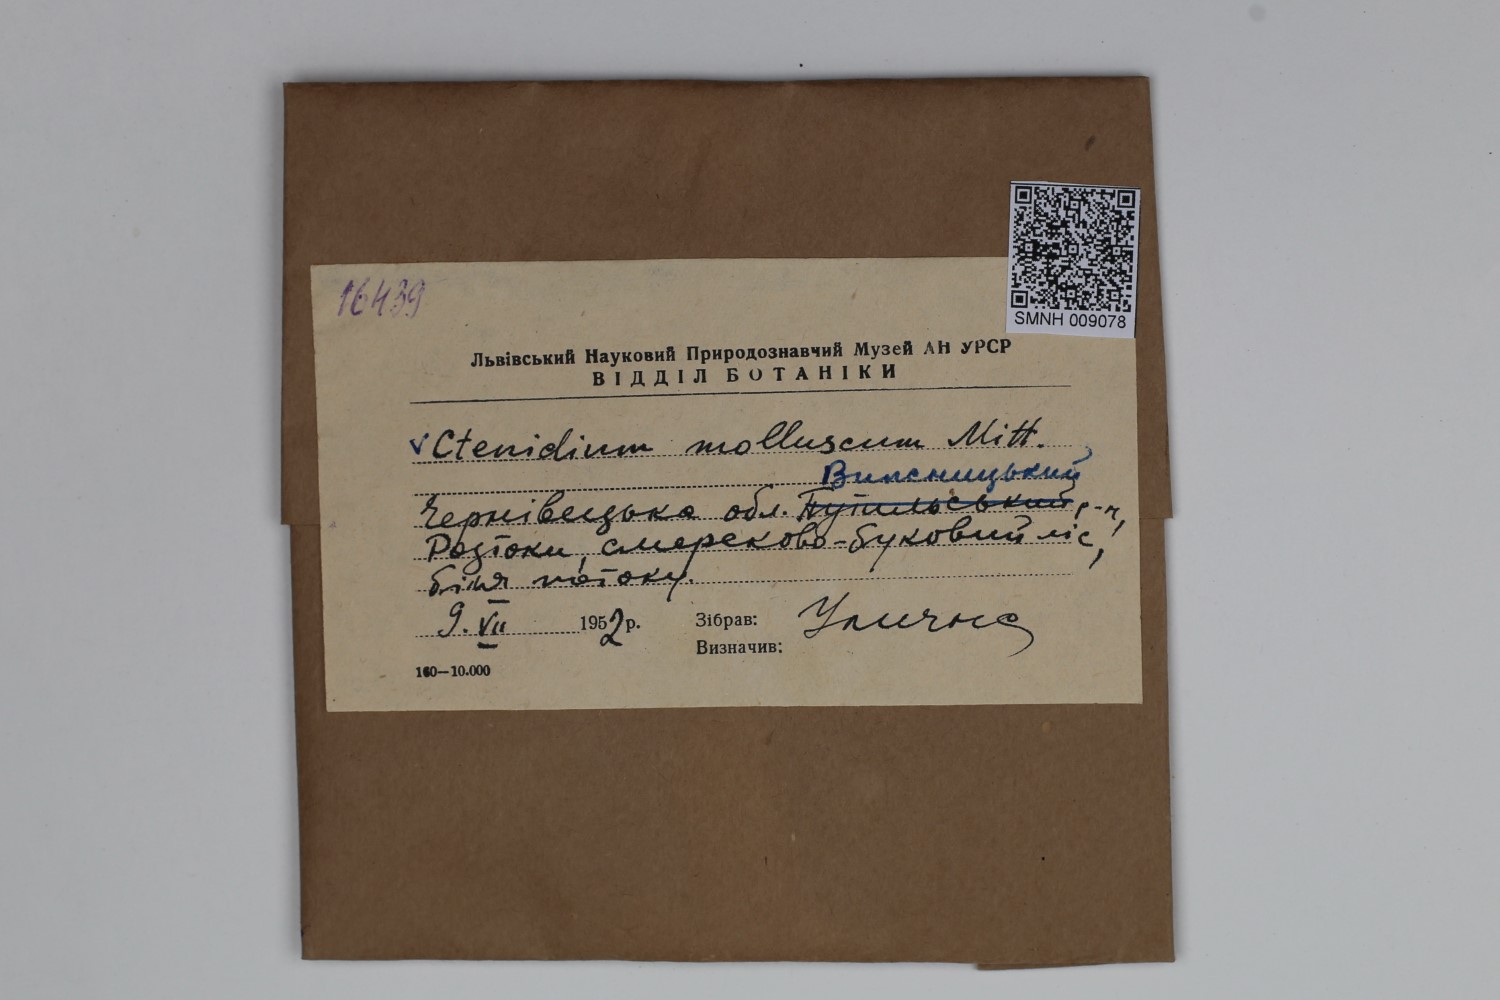 16439
SMNH 009078
Львівський Науковий Природознавчий Музей АН УРСР
ВІДДІЛ БОТАНІКИ
v Ctenidium molluscum Mitt.
Вижницький
Чернівецька обл. Путильський р-н,
Розтоки, смереково-буковий ліс,
біля потоку.
9. VII 1952 р. Зібрав: Улична
Визначив:
160—10.000